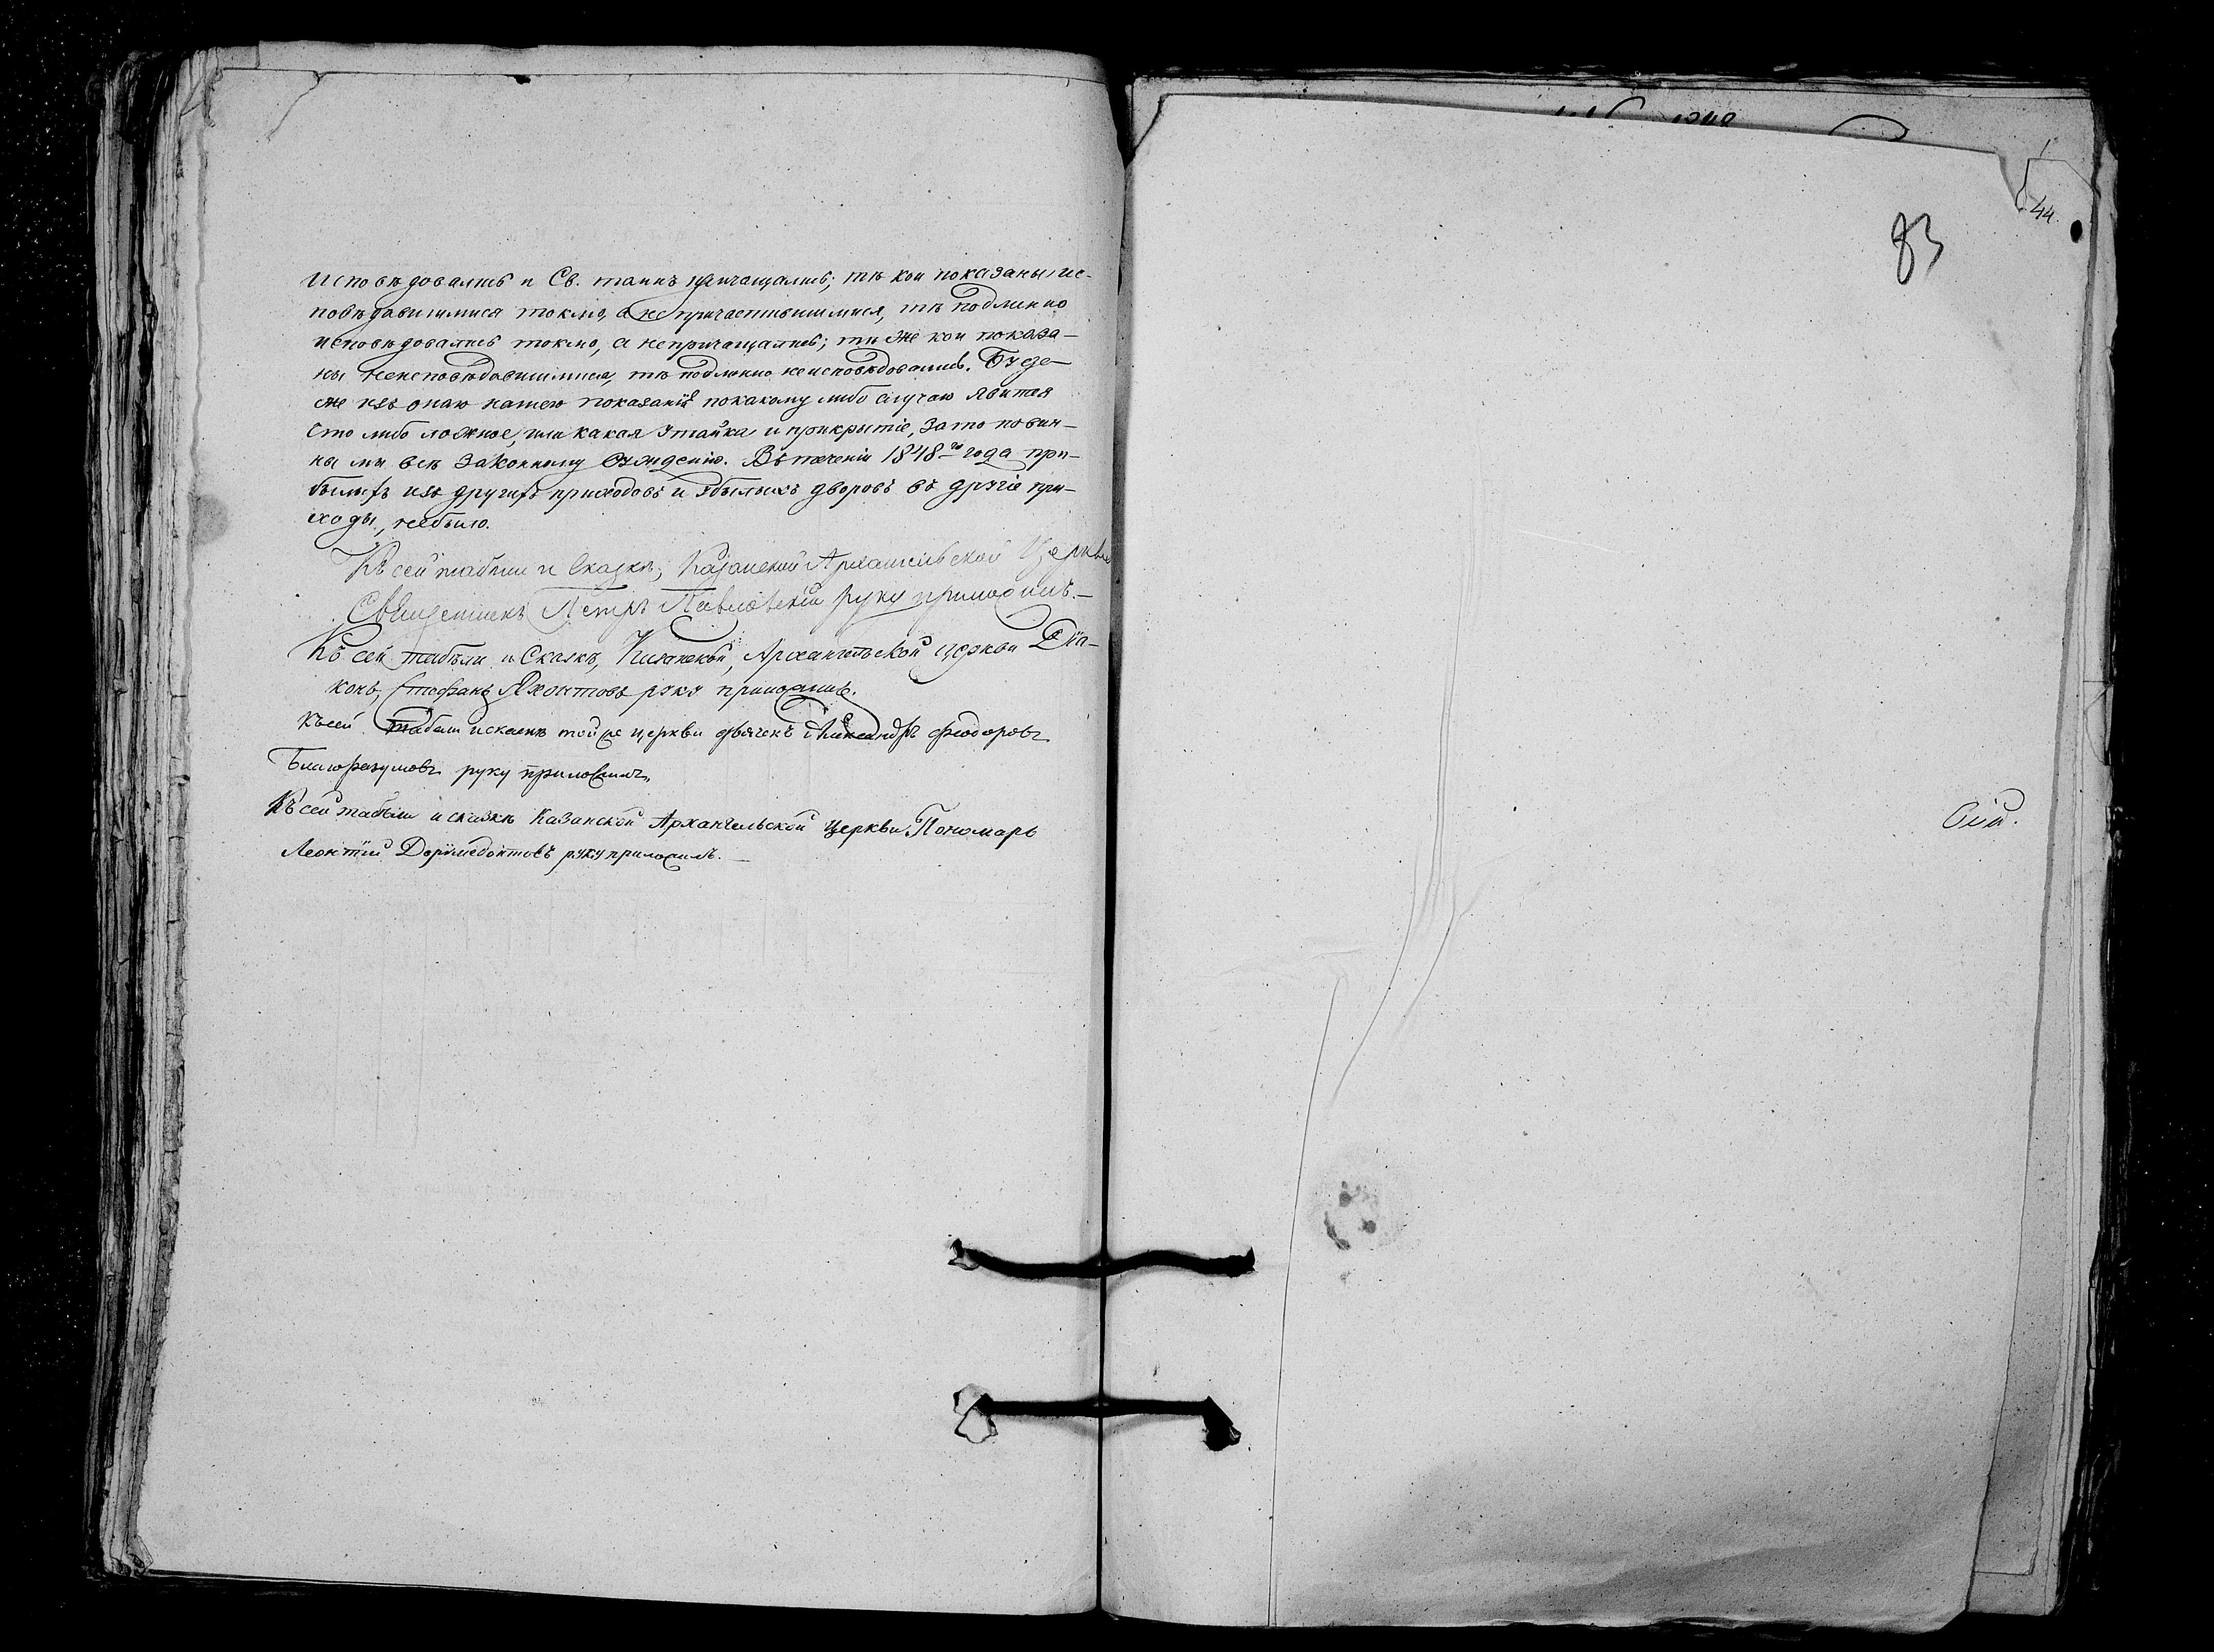 исповѣдовались и Св. таинъ причащались; тѣ кои показаны ис-
повѣдавшимися токмо, а не причастившимися, тѣ подлинно
исповѣдовались токмо, а непричащались; тѣ же кои показа-
ны неисповѣдавшимися, тѣ подлинно неисповѣдовались. Буде-
же изъ онаго нашего показанія покакому либо случаю явится
что либо ложное, или какая утайка и прикрытіе, зато повин-
ны мы всѣ законному сужденію. Въ теченіи 1848-го года при-
былыхъ изъ другихъ приходовъ и убылыхъ дворовъ въ другіе при-
ходы, небыло.
Къ сей табели и сказкѣ, Казанской Архангельской Церкви
Священникъ Петръ Павловскій руку приложилъ.—
Къ сей табѣли и Сказкѣ, Казанской, Архангельской церкви Діа-
конъ, Стефанъ Яхонтовъ руку приложилъ.
Къ сей табели искаскѣ той же церкви дьячекъ Александръ Феодоровъ
Благоразумовъ руку приложилъ
Къ сей табѣли и сказкѣ Казанской Архангельской Церкви Пономарь
Леонтій Доримедонтовъ руку приложилъ.—
83
44